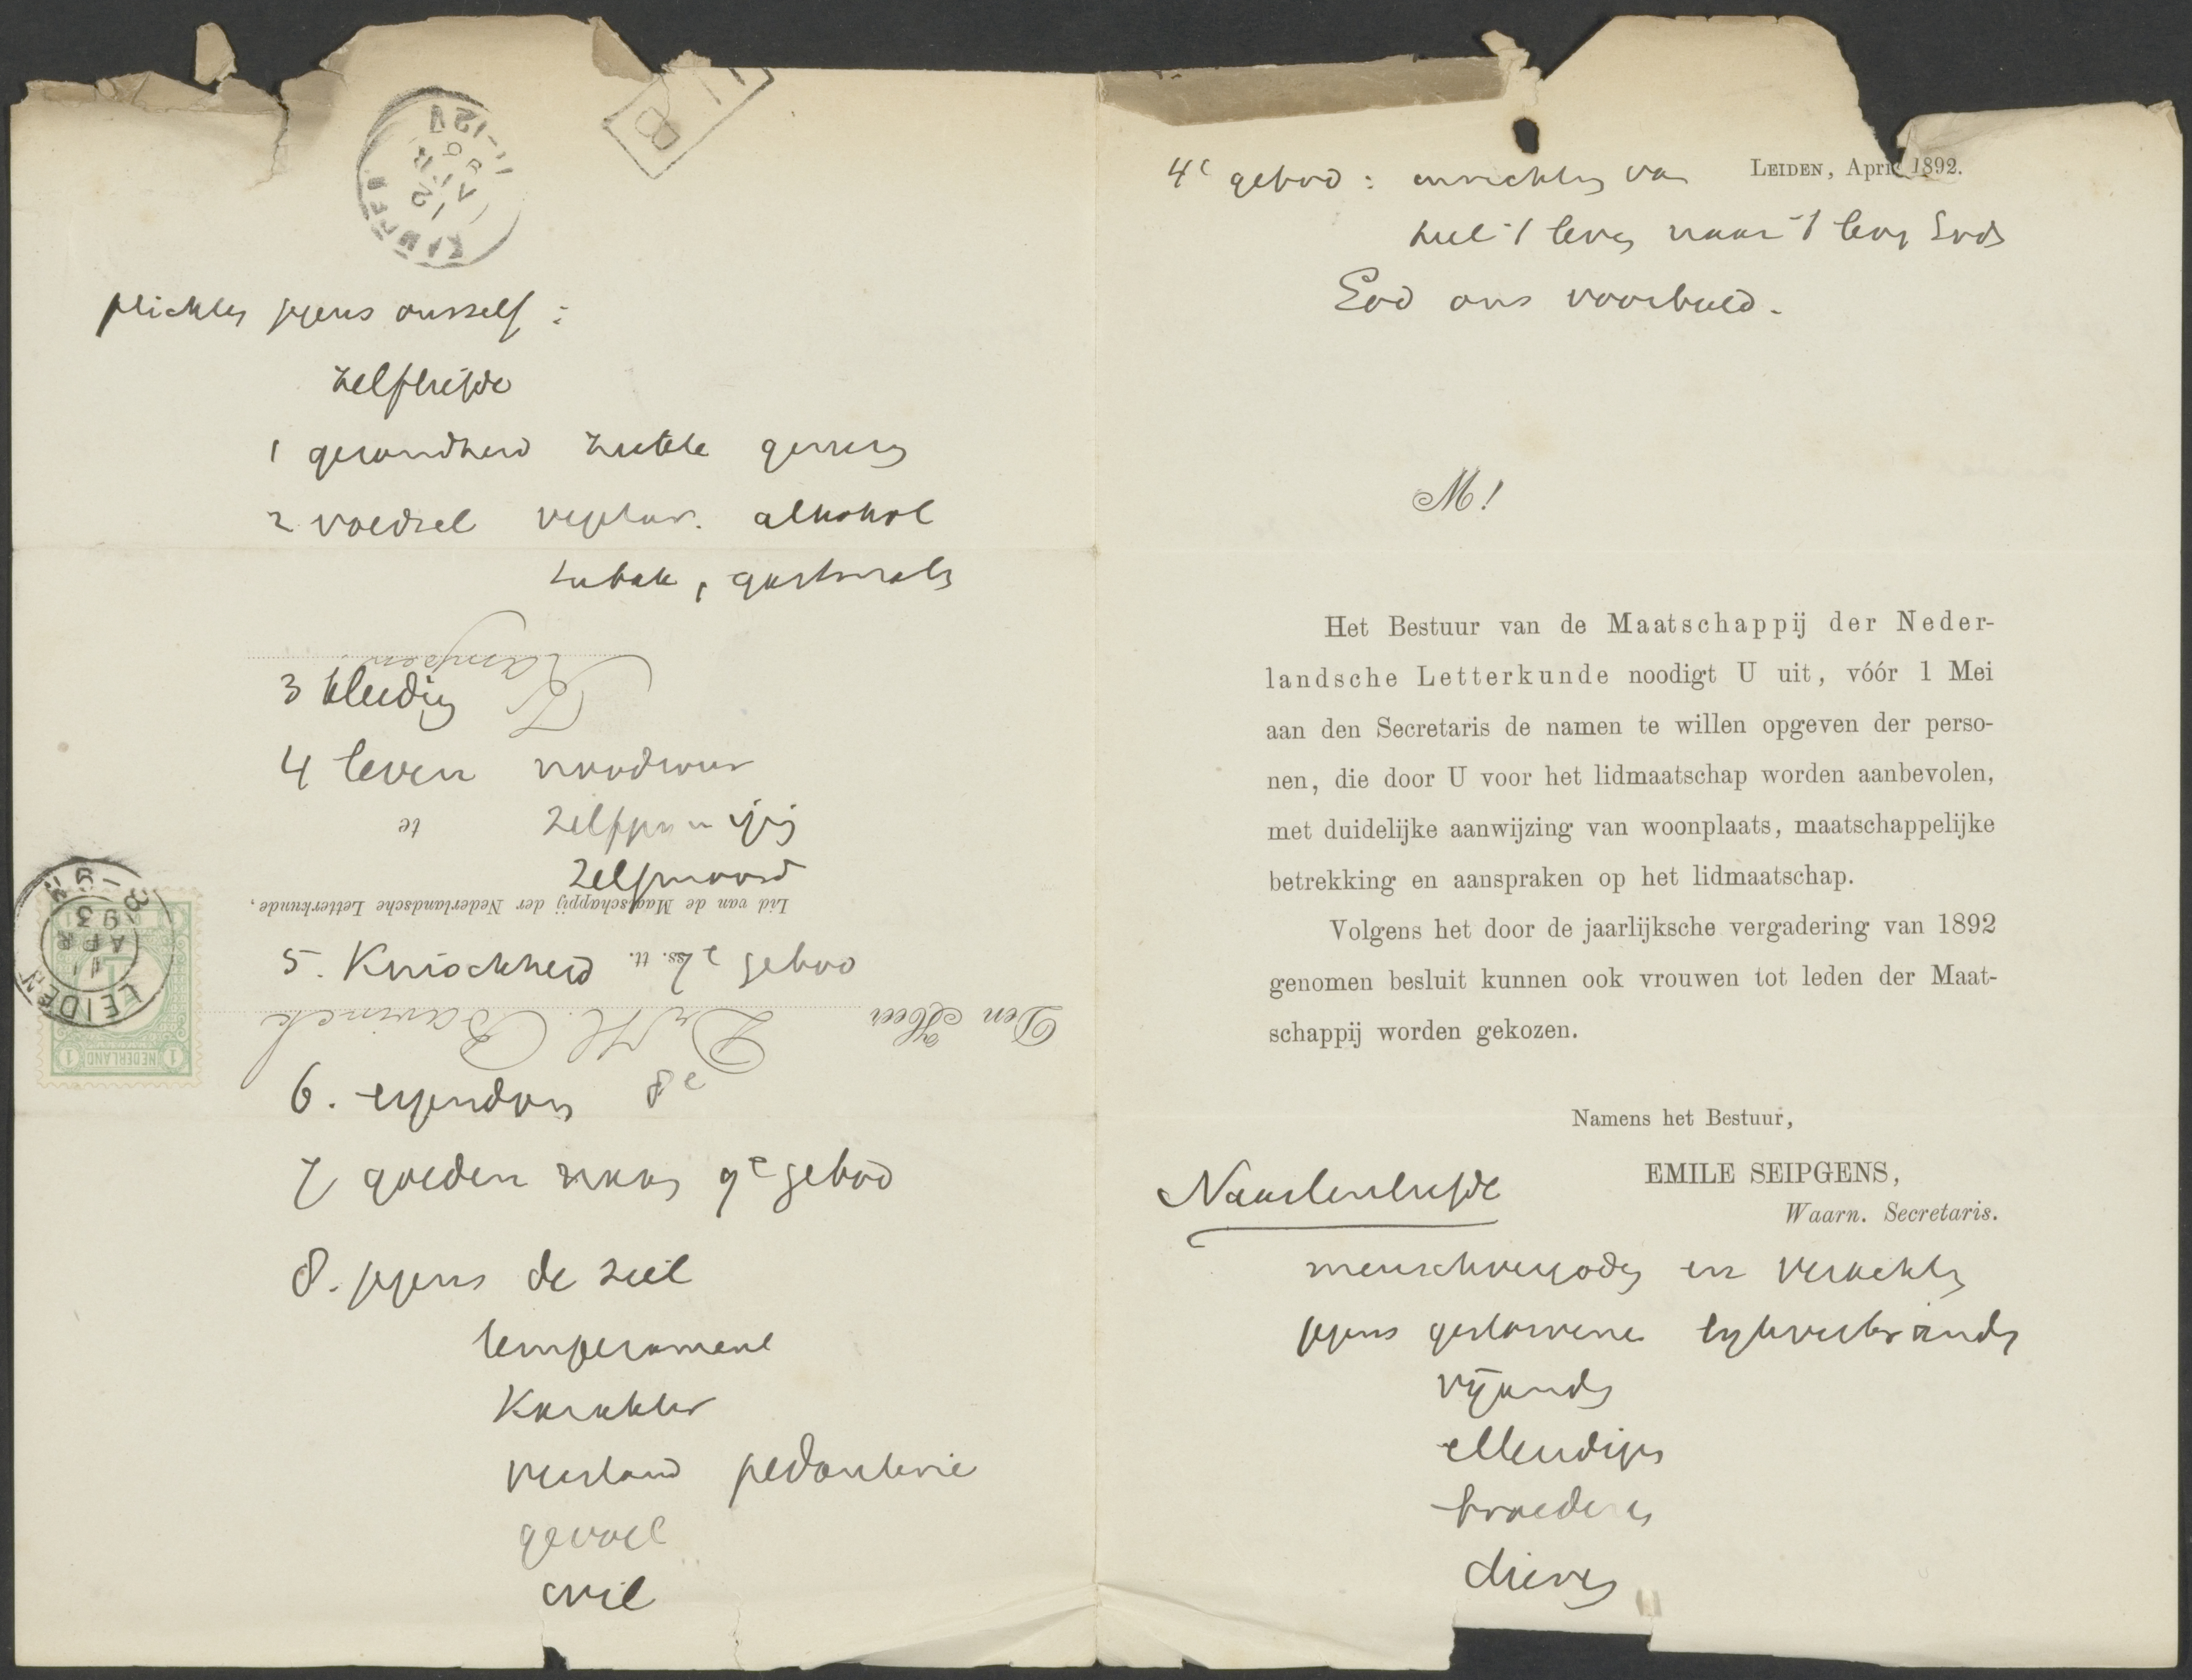 plichten jegens onszelf:
zelfliefde
1 gezondheid ziekte genezing
2 voedsel vegetar. alkohol
tabak,
Kampen.
3 kleeding
4 leven noodweer
te
zelfmoord
Lid van de Maatschappij der Nederlandsche Letterkunde,
5. Kuischheid 7e gebod
Den Heer Dr H. Bavinck
6. eigendom 8e
7 goeden naam 9e gebod
8. jegens de ziel
temperament
karakter
verstand pedanterie
gevoel
wil
KAMPEN
12 APR
11-12V
LEIDEN
11 APR 93
8-9N
NEDERLAND
1 1
4e gebod: inrichting van
heel 't leven naar 't leven Gods
God ons voorbeeld.
LEIDEN, April 1892.
M!
Het Bestuur van de Maatschappij der Neder-
landsche Letterkunde noodigt U uit, vóór 1 Mei
aan den Secretaris de namen te willen opgeven der perso-
nen, die door U voor het lidmaatschap worden aanbevolen,
met duidelijke aanwijzing van woonplaats, maatschappelijke
betrekking en aanspraken op het lidmaatschap.
Volgens het door de jaarlijksche vergadering van 1892
genomen besluit kunnen ook vrouwen tot leden der Maat-
schappij worden gekozen.
Namens het Bestuur,
EMILE SEIPGENS,
Waarn. Secretaris.
Naastenliefde
menschvergoding en verachting
jegens gestorvene lijkverbranding
vijanden
ellendigen
broederen
dieren